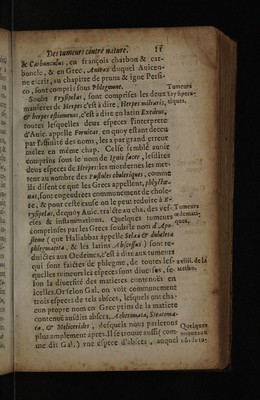 Des tumeurs côntre nature. 11
& Carbunculus, en françois charbon & car-
boncle, & en Grec, Anthrax duquel Auicen-
ne escrit, au chapitre de pruna & igne Persi-
co, sont compris sous Phlegmone. Tumeurs
Soubs Erysipelas, sont comprises les deux Erysipela-
manieres de Herpes c'est à dire, Herpes miliaris, tiques.
& herpes esthiomenus, c'est à dire en latin Exedens,
toutes lesquelles deux especes l'interprete
d'Auic. appelle Formicas, en quoy estant deceu
par l'affinité des noms, les a par grand erreur
meslez en mesme chap. Celse semble auoir
comprins sous le nom de Ignis sacer, lesdites
deux especes de Herpes: les modernes les met-
tent au nombre des Pustules choleriques, comme
ils disent ce que les Grecs appellent, phlycta-
nas, sont engendrees communement de chole-
re, & pour ceste cause on le peut reduire à E-
rysipelas, de quoy Auic. traicte au cha. des ves- Tumeurs
cies & inflammations. Quelques tumeurs œdemati-
comprinses par les Grecs soubs le nom d'Apo- ques.
steme ( que Haliabbas appelle Selaa & dubeleta
phlegmatica, & les latins Abscessus) sont re-
duictes aux Oedemes, c'est à dire aux tumeurs
qui sont faictes de phlegme, de toutes les- xviiij. de la
quelles tumeurs les especes sont diuerses, se- Metho.
lon la diuersité des matieres contenues en
icelles. Or selon Gal. on voit communement
trois especes de tels abscez, lesquels ont cha-
cun propre nom en Grec prins de la matiere
contenuë ausdits abscez, Atheromata, Steatoma-
ta, & Melicerides, desquels nous parlerons Quelques
plus amplement apres. Il se trouue aussi (com-
me dit Gal.) vne espece d'abscez, auquel